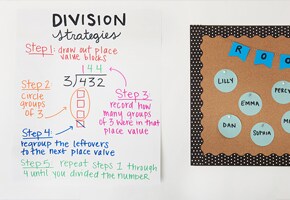 DIVISION
strategies
Step 1: draw out place
value blocks
144
3)432
Step 2:
circle
groups
of 3
Step 3:
record how
many groups
of 3 were in that
place value
Step 4:
regroup the leftovers
to the next place value
Step 5: repeat steps 1 through
4 until you divided the number
ROO
LILLY
PERCY
EMMA
DAN
SOPHIA